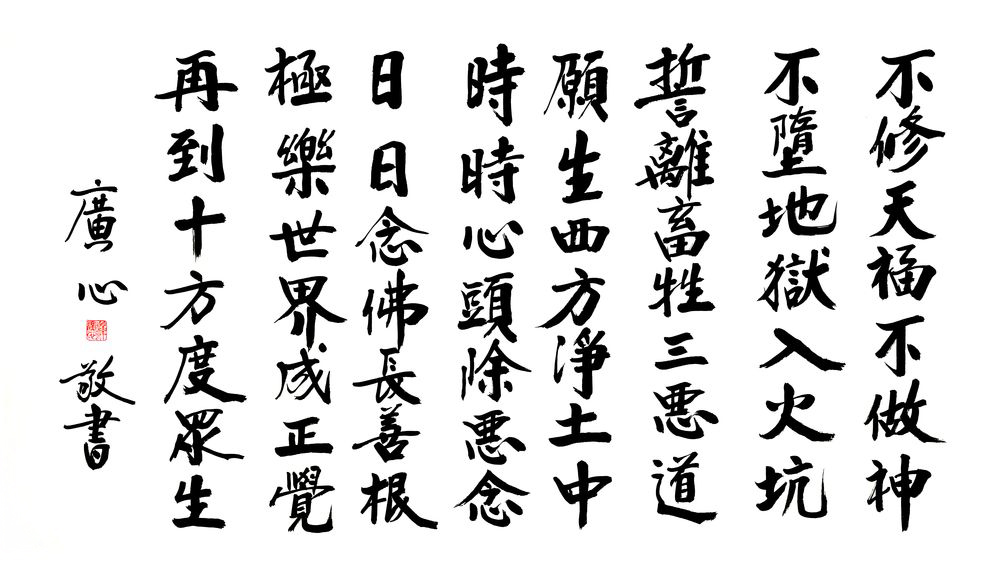 不修天福不做神
不墮地獄入火坑
誓離畜牲三惡道
願生西方淨土中
時時心頭除惡念
日日念佛長善根
極樂世界成正覺
再到十方度眾生
廣心敬書